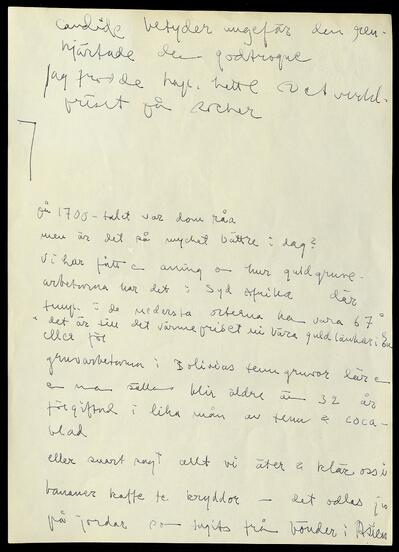 candide betyder ungefär den ren-
hjärtade den godtrogne
Jag trodde han hette det
priset på socker
på 1700-talet var dom råa
men är det så mycket bättre i dag?
vi har fått en aning om hur guldgruve-
arbetarna har det i Syd Afrika där
temp. i de nedersta orterna kan vara 67°
det är till det värmepriset vi bära guldlänkar i
eller för
gruvarbetarna i Bolivias tenngruvor där
man sällan blir äldre än 32 år
förgiftad i lika mån av tenn & coca-
blad
eller snart sagt allt vi äter & klär oss i
bananer kaffe te kryddor — det odlas ju
på jordar som tagits från bönder i Asien